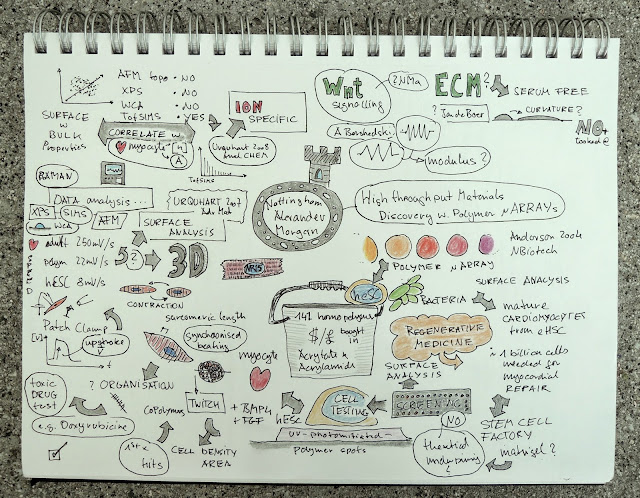 AFM topo • NO
XPS • NO
WCA • NO
TofSIMS • YES
SURFACE
w
BULK
Properties
CORRELATE w
myocyte
n
A
ION
SPECIFIC
Urquhart 2008
Anal CHEM
TofSIMS
Wnt
signalling
?NMa
ECM?
SERUM FREE
? Jan de Boer
CURVATURE?
NO+
looked @
A Borshedski
modulus?
RAMAN
DATA analysis...
XPS
SIMS
WCA
AFM
URQUHART 2007
Adv Mat
SURFACE
ANALYSIS
Nottingham
Alexander
Morgan
High throughput Materials
Discovery w. Polymer µARRAYs
Anderson 2004
NBiotech
POLYMER µARRAY
adult 250mV/s
polym 22mV/s
hESC 8mV/s
5?
3D
NNS
CONTRACTION
sarcomeric length
Patch Clamp
[V]
upstroke
synchronised
beating
hESC
BACTERIA
SURFACE ANALYSIS
mature
CARDIOMYOCYTES
from eHSC
141 homopolymers
$/£ bought
in
Acrylate &
Acrylamide
REGENERATIVE
MEDICINE
SURFACE
ANALYSIS
~ 1 billion cells
needed for
myocardial
REPAIR
myocyte
toxic
DRUG
test
e.g. Doxyrubicine
? ORGANISATION
Copolymers
1st
hits
TWITCH
CELL DENSITY
AREA
+ BMP4
+ FGF
hESC
CELL
TESTING
SCREENING
UV-photoinitiated-
polymer spots
NO
theoretical
underpinning?
STEM CELL
FACTORY
matrigel?